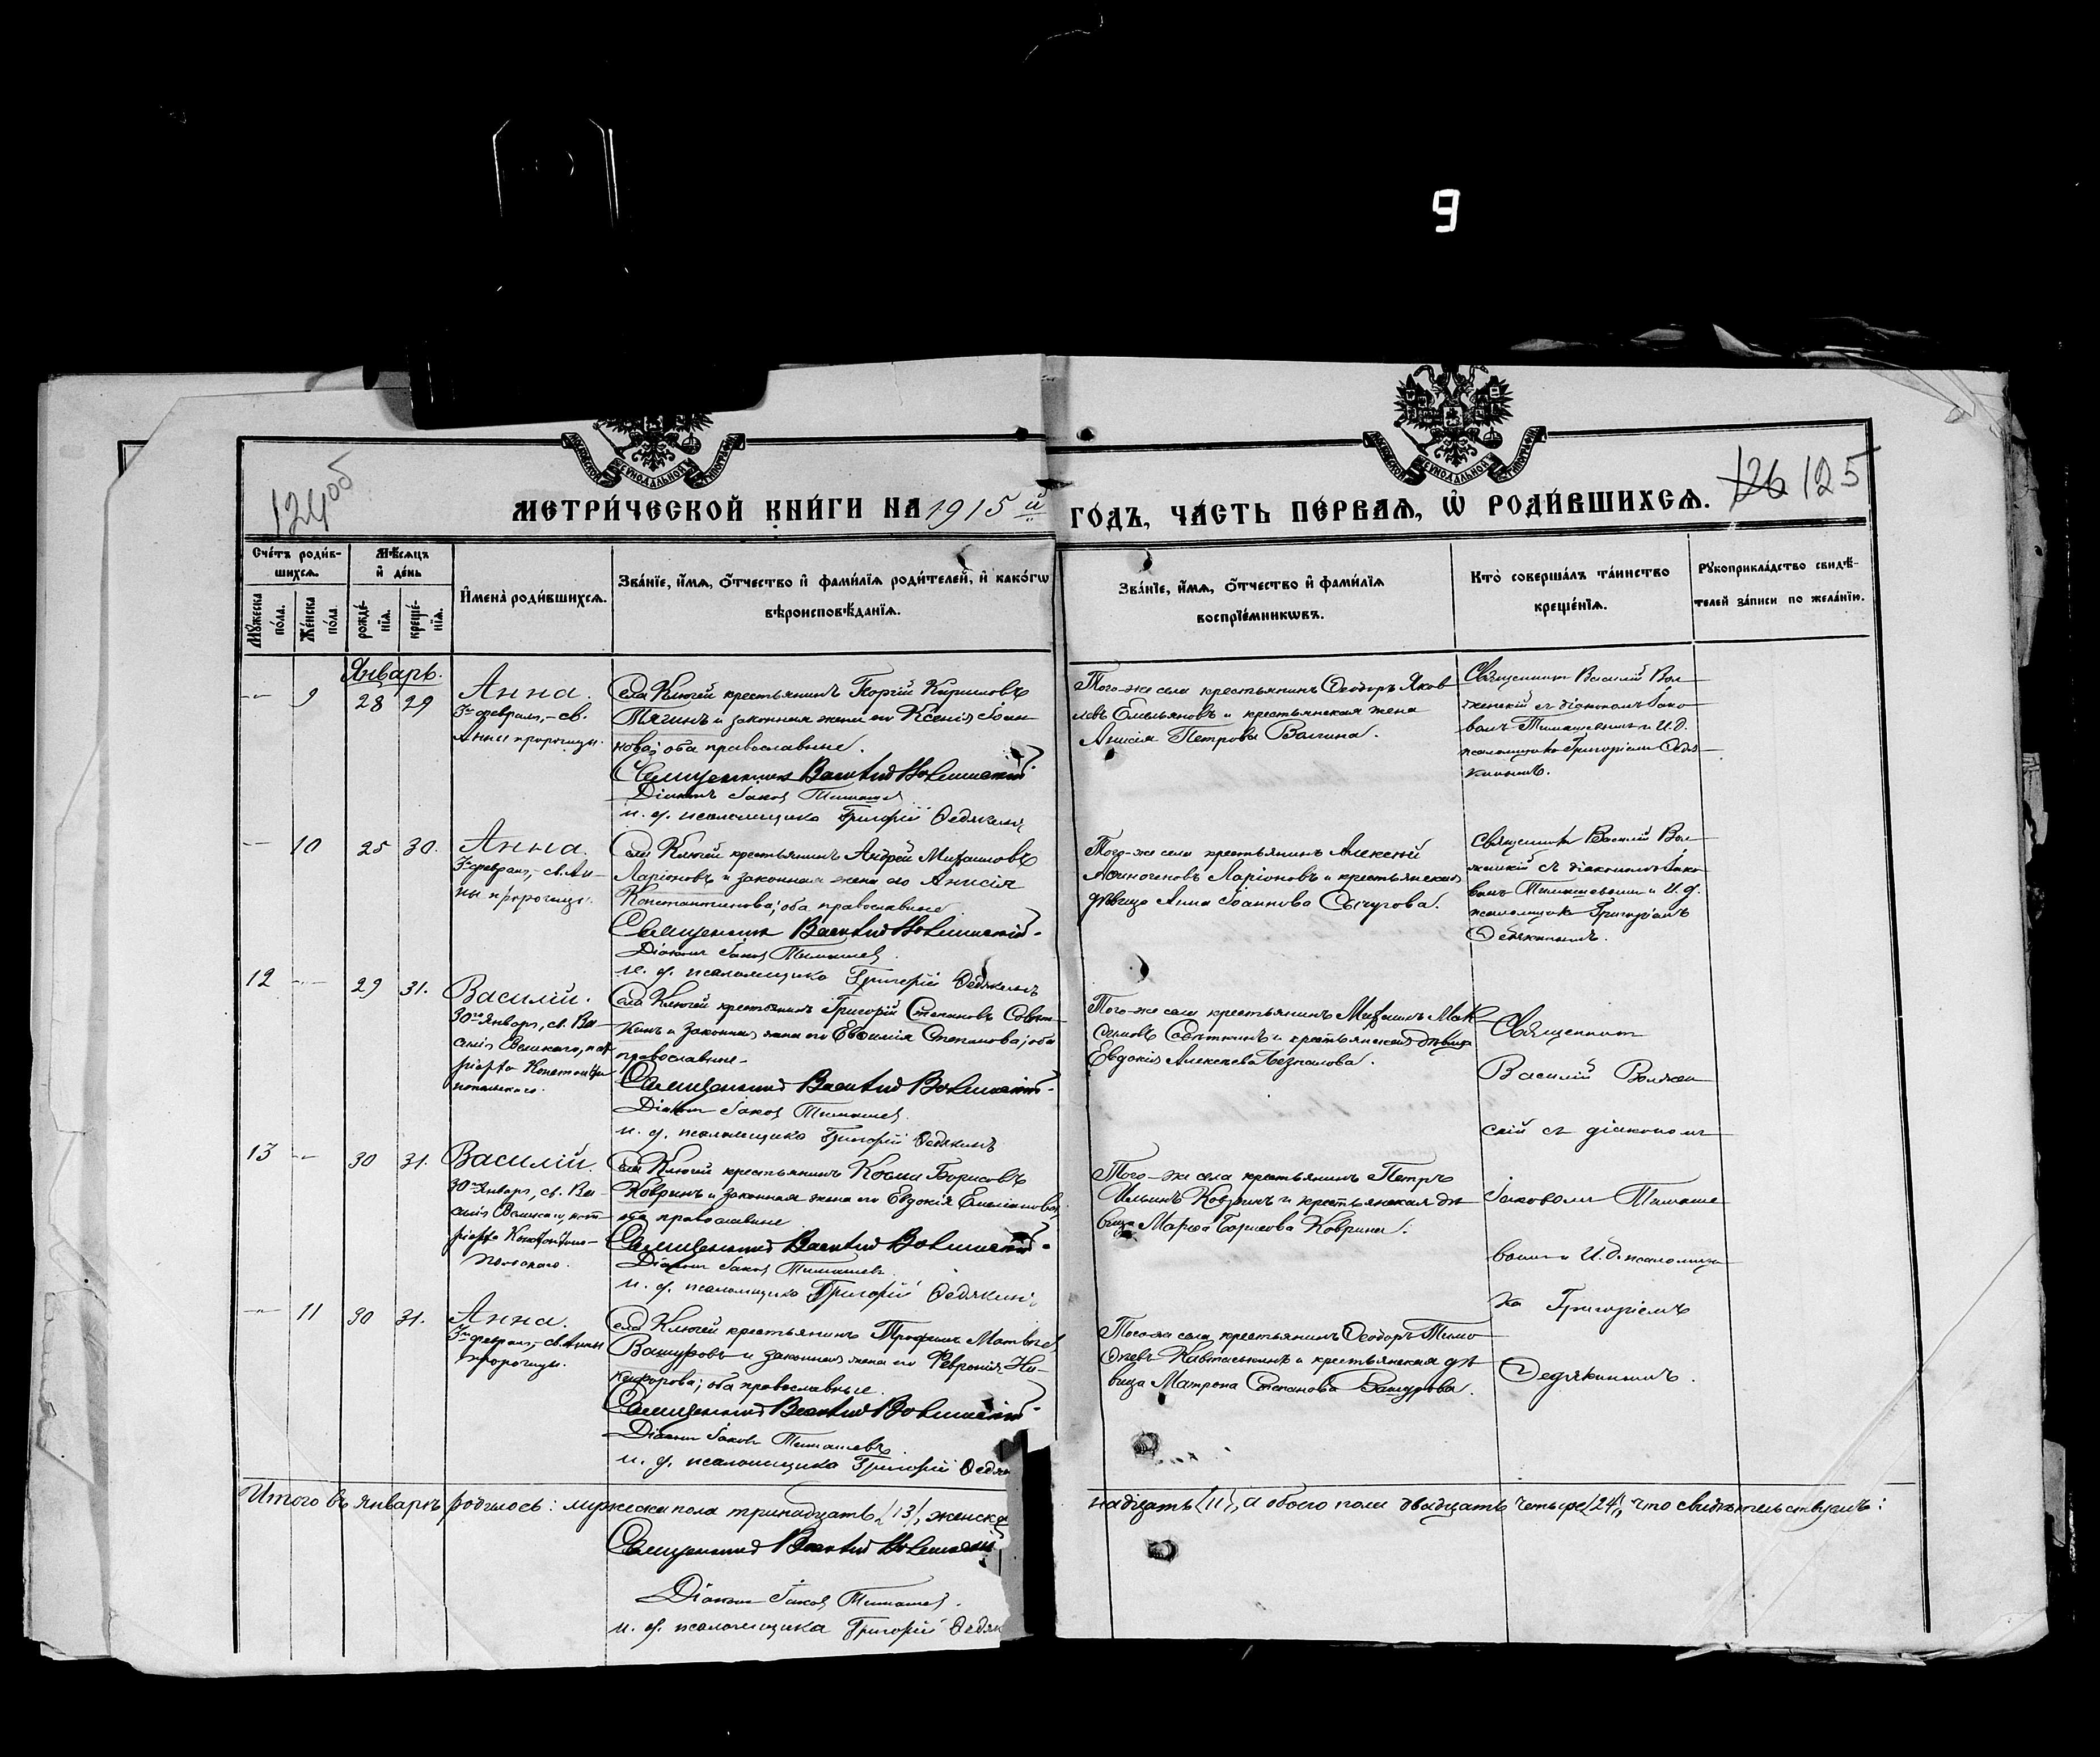 9
124 об
126 125
МОСКОВСКОЙ СѴНОДАЛЬНОЙ ТИПОГРАФІИ
МОСКОВСКОЙ СѴНОДАЛЬНОЙ ТИПОГРАФІИ
МЕТРИ́ЧЕСКОЙ КНИ́ГИ НА 1915 й ГО́ДЪ, ЧА́СТЬ ПЕ́РВАѦ, Ѡ҆ РОДИ́ВШИХСѦ.
Сче́тъ роди́в-
шихсѧ.
Мꙋ́жеска по́ла.
Же́нска по́ла.
Мѣ́сѧцъ
и҆ де́нь
рожде́-
нїѧ.
креще́-
нїѧ.
И҆мена̀ роди́вшихсѧ.
Зва́нїе, и҆́мѧ, ѻ҆́тчество и҆ фами́лїѧ роди́телей, и҆ како́гѡ
вѣроисповѣ́данїѧ.
Зва́нїе, и҆́мѧ, ѻ҆́тчество и҆ фами́лїѧ
воспрїе́мникѡвъ.
Кто̀ соверша́лъ та́инство
креще́нїѧ.
Рꙋкоприкла́дство свидѣ́-
телей за́писи по жела́нїю.
Январь.
-- 9 28 29
Анна.
3го февраля,- св.
Анны пророчицы.
Села Ключей крестьянинъ Георгій Кириловъ
Тягинъ и законная жена его Ксенія Іоан-
нова; оба православные.
Священникъ Василій Волженскій.
Діаконъ Іаковъ Тимашев
и. д. псаломщика Григорій Ѳедякинъ
Того-же села крестьянинъ Ѳеодоръ Яков
левъ Емельяновъ и крестьянская жена
Анисія Петрова
Священникъ Василій Вол-
женскій съ діакономъ Іако-
вомъ Тимашевымъ и И.д.
псаломщика Григоріемъ Ѳедя-
кинымъ.
-- 10 25 30.
Анна.
3го февраля,- св. Ан-
ны пророчицы.
Села Ключей крестьянинъ Андрей Михаиловъ
Ларіоновъ и законная жена его Анисія
Константинова; оба православные
Священникъ Василій Волженскій.
Діаконъ Іаковъ Тимашев.
и. д. псаломщика Григорій Ѳедякинъ
Того-же села крестьянинъ Алексѣй
Аѳиногеновъ Ларіоновъ и крестьянская
дѣвица Анна Іоаннова Сычугова.
Священникъ Василій Вол-
женскій съ діакономъ Іако-
вомъ Тимашевымъ и И.д.
псаломщика Григоріемъ
Ѳедякинымъ.
12 -- 29 31.
Василій.
30го января, св. Ва-
силія Великаго, пат
ріарха Константи
нопольскаго.
Села Ключей крестьянинъ Григорій Степановъ
и законная жена его Евѳимія Степанова; оба
православные.
Священникъ Василій Волженскій.
Діаконъ Іаковъ Тимашев.
и. д. псаломщика Григорій Ѳедякинъ
Того-же села крестьянинъ Михаилъ Мак-
симовъ и крестьянская дѣвица
Евдокія Алексѣева
Священникъ
Василій Волжен
скій съ діакономъ
Іаковомъ Тимаше
вымъ и И.д. псаломщи
ка Григоріемъ
Ѳедякинымъ.
13 -- 30 31.
Василій.
30го января, св. Ва-
силія Великаго, пат-
ріарха Константино-
польскаго.
Села Ключей крестьянинъ Косма Борисовъ
Ковринъ и законная жена его Евдокія Емеліанова;
оба православные
Священникъ Василій Волженскій.
Діаконъ Іаковъ Тимашевъ
и. д. псаломщика Григорій Ѳедякинъ
Того-же села крестьянинъ Петръ
Ильинъ Ковринъ и крестьянская дѣ
вица Марѳа Борисова Коврина.
-- 11 30 31.
Анна.
3го февраля,- св. Анны
пророчицы.
Села Ключей крестьянинъ Трофимъ Матвѣев
Вашуровъ и законная жена его Февронія Ни-
кифорова; оба православные.
Священникъ Василій Волженскій.
Діаконъ Іаковъ Тимашевъ
и. д. псаломщика Григорій Ѳедя
Того-же села крестьянинъ Ѳеодоръ Тимо
ѳеевъ и крестьянская дѣ
вица Матрона Степанова Вашурова.
Итого въ январѣ родилось: мужеска пола тринадцать (13), женска
надцать (11), а обоего пола двадцать четыре (24), что свидѣтельствуемъ:
Священникъ Василій Волженскій
Діаконъ Іаковъ Тимашев.
и. д. псаломщика Григорій Ѳедяк